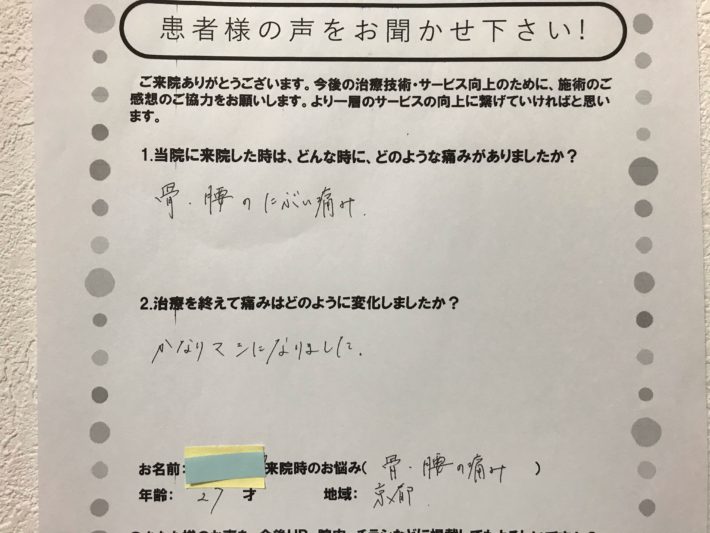 患者様の声をお聞かせ下さい!
ご来院ありがとうございます。今後の治療技術・サービス向上のために、施術のご
感想のご協力をお願いします。より一層のサービスの向上に繋げていければと思い
ます。
1.当院に来院した時は、どんな時に、どのような痛みがありましたか?
骨・腰のにぶい痛み.
2.治療を終えて痛みはどのように変化しましたか?
かなりマシになりました.
お名前: 来院時のお悩み( 骨・腰の痛み )
年齢: 27 才 地域: 京都